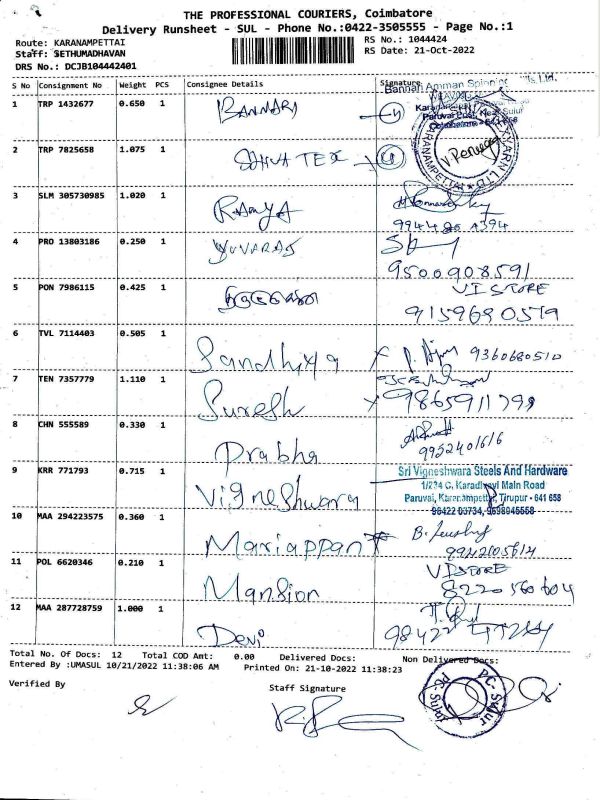 THE PROFESSIONAL COURIERS, Coimbatore
Delivery Runsheet - SUL - Phone No.:0422-3505555 - Page No.:1
Route: KARANAMPETTAI RS No.: 1044424
Staff: SETHUMADHAVAN RS Date: 21-Oct-2022
DRS No.: DCJB104442401
S No Consignment No Weight PCS Consignee Details Signature
Bannari Amman Spinning Mills Ltd.
1 TRP 1432677 0.650 1 BANNARI
Paruvai Post, Near Sulur
2 TRP 7825658 1.075 1 SHIVA TEX
KARANAMPETTAI
3 SLM 305730985 1.020 1 RAMYA
4 PRO 13803186 0.250 1 YUVARAJ
9500908591
5 PON 7986115 0.425 1 VISTORE
9159690579
6 TVL 7114403 0.505 1 Sandhiya 9360680510
7 TEN 7357779 1.110 1 Suresh 9865911799
8 CHN 555589 0.330 1 Prabha
9952401616
9 KRR 771793 0.715 1 Vigneshwara Sri Vigneshwara Steels And Hardware
Main Road
Paruvai, Karanampettai, Tirupur - 641 658
10 MAA 294223575 0.360 1 Mariappan
11 POL 6620346 0.210 1 Mansion VISTORE
8220560604
12 MAA 287728759 1.000 1 Devi
Total No. Of Docs: 12 Total COD Amt: 0.00 Delivered Docs: Non Delivered Docs:
Entered By :UMASUL 10/21/2022 11:38:06 AM Printed On: 21-10-2022 11:38:23
Verified By Staff Signature
PC-Sulur
PC-Sulur